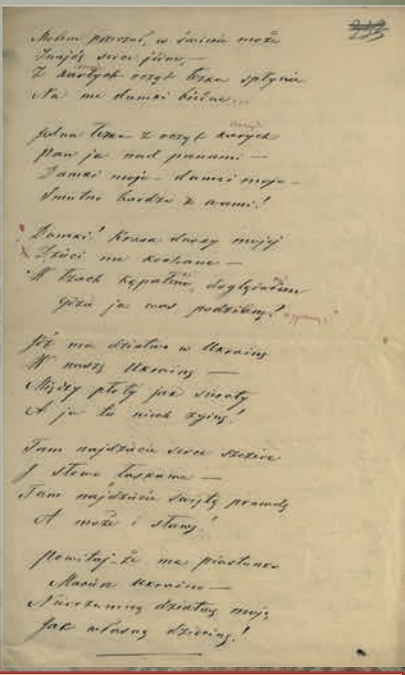 przeczuł, w świecie może
Znajdę serce jedne, —
Z karych łezka spłynie
Na me dumki biedne...
Jedna łezka z karych
Pan ja nad panami —
Dumki moje - dumki moje -
Smutno bardzo z wami!
Dumki! Krasa duszy mojej
Dzieci me kochane —
W łzach kąpałem, doglądałem
Gdzie ja was
Idź ma dziatwo w Ukrainę
W naszą Ukrainę —
Między płoty jak sieroty
A ja tu niech zginę!
Tam najdziecie serce szczere
I słowo łaskawe —
Tam najdziecie świętą prawdę
A może i sławę!
Powitaj-że ma piastunko
Ukraino —
Nierozumną dziatwę moją,
Jak własną dziecinę!